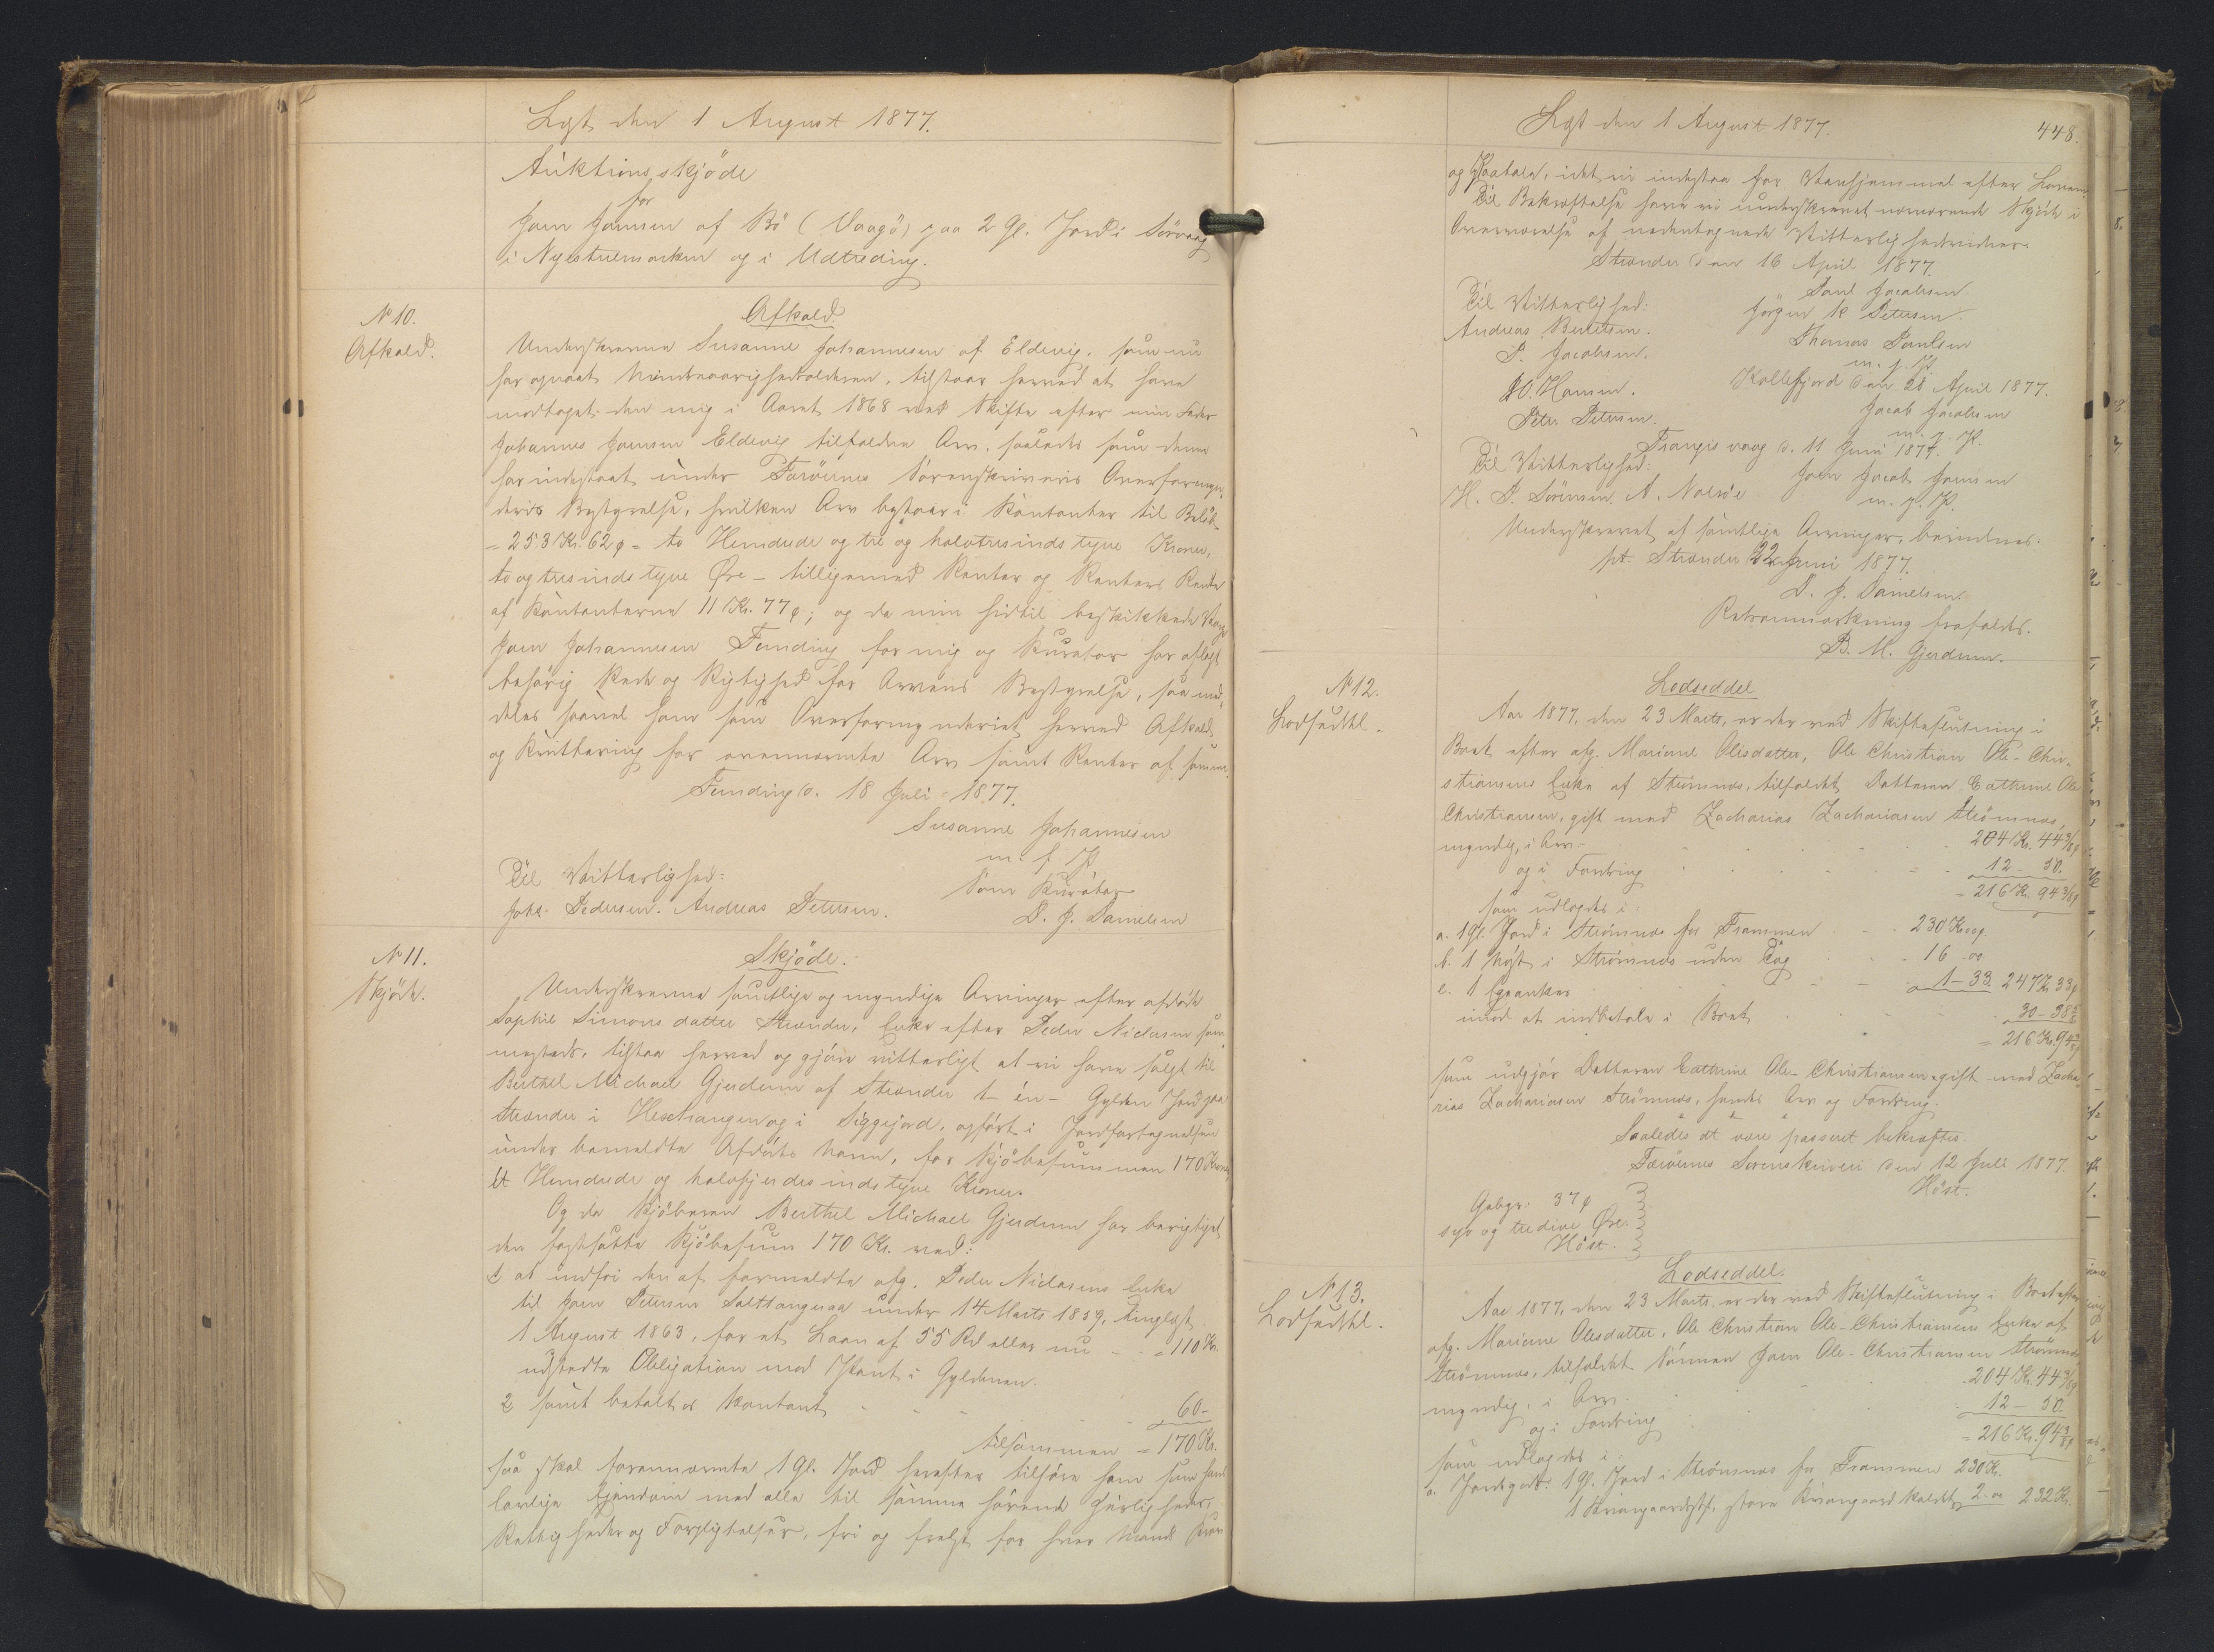 Lgt den 1 August 1877.
Auktionsskjöde
for
Joen Joensen af Bö (Vaagö) paa 2 Gl. Jord i Sörvaag
i Nygstuemarken og i Udtreding.
No 10.
Afkald.
Afkald
Underskrevne Susanne Johannesen af Eldevig, som nu
har opnaaet Mindreaarighedsalderen, tilstaar herved at have
modtaget den mig i Aaret 1868 ved Skifte efter min Fader
Johannes Joensen Eldevig tilfaldne Arv, saaledes som denne
har indestaaet under Færöernes Sorenskriveris Overformyn-
deris Bestyrelse, hvilken Arv bestaar i Kontanter til Beløb
= 253 Kr. 62 ø = to Hundrede og tre og halvtresindstyve Kroner,
to og tresindstyve Øre – tilligemed Renter og Renters Rente
af Kontanterne 11 Kr. 77 ø; og da min hidtil beskikkede Værge
Joen Johannesen Funding for mig og Kurator har aflagt
behörig Rede og Rigtighed for Arvens Bestyrelse, saa med-
deles saavel ham som Overformynderiet herved Afkald
og Kvittering for ovennævnte Arv samt Renter af samme.
Funding d. 18 Juli 1877.
Susanne Johannesen
m. f. P.
Til Vitterlighed:
Som Kurator
Johs. Pedersen. Andreas Petersen.
D. J. Danielsen
No 11.
Skjöde.
Skjöde.
Underskrevne samtlige og myndige Arvinger efter afdöde
Sophie Simonsdatter Strænder, Enke efter Peder Niclasen sam-
mesteds, tilstaa herved og gjöre vitterligt at vi have solgt til
Berthel Michael Gjerdum af Strænder 1 – én – Gylden Jord paa
Strænder i Heschangen og i Siggejord, opfört i Jordfortegnelsen
under bemeldte Afdödes Navn, for Kjöbesummen 170 Kroner
Et Hundrede og halvfjerdesindstyve Kroner.
Og da Kjöberen Berthel Michael Gjerdum har berigtiget
den fastsatte Kjöbesum 170 Kr. ved:
1 at indfri den af formeldte afg. Peder Niclasens Enke
til Joen Petersen Saltangeraa under 14 Marts 1859, tinglyst
1 August 1863, for et Laan af 55 Rd eller nu - - = 110 Kr.
udstedte Obligation med Pant i Gyldenen.
2 samt betalt os kontant - - - 60 -
tilsammen = 170 Kr.
saa skal forannævnte 1 Gl. Jord herefter tilhöre ham som hans
lovlige Ejendom med alle til samme hörende Herligheder,
Rettigheder og Forpligtelser, fri og frelst for hver Mands Krav
Lgt den 1 August 1877.
448.
og Paatale, idet vi indestaa for Vanhjemmel efter Loven.
Til Bekræftelse have vi underskrevet nærværende Skjöde i
Overværelse af nedentegnede Vitterlighedsvidner.
Strænder den 16 April 1877.
Poul Jacobsen
Til Vitterlighed:
Jörgen K Petersen
Andreas Berentsen.
Thomas Poulsen
P. Jacobsen.
m. f. P.
Kollefjord den 28 April 1877.
O. Hansen.
Jacob Jacobsen
Peter Petersen.
m. f. P.
Trangisvaag d. 11 Juni 1877.
Til Vitterlighed:
Joen Jacob Joensen
H. P. Sörensen A. Nolsöe
m. f. P.
Underskrevet af samtlige Arvinger, bevidnes.
pt. Strænder 22 Juni 1877.
D. J. Danielsen.
Retsanmærkning frafaldes.
B. M. Gjerdum.
No 12.
Lodseddel.
Lodseddel
Aar 1877, den 23 Marts, er der ved Skifteslutning i
Boet efter afg. Mariane Olisdatter, Ole Christian Ole-Chri-
stiansens Enke af Strömnæs, tilfaldet Datteren Cathrine Ole
Christiansen, gift med Zacharias Zachariasen Strömnæs,
myndig, i Arv - 204 Kr. 44 3/8 ø
og i Fordring - - 12 – 50.
= 216 Kr. 94 3/8 ø
som udlagdes i:
a. 1 Gl. Jord i Strömnæs for Frammen - - 230 Kr. 00 ø.
b. 1 Nöst i Strömnæs uden Tag - - 16 00
c. 1 - - 1 – 33. 247 Kr. 33 ø
imod at indbetale i Boet - - 30 – 38 5/8
= 216 Kr. 94 3/8 ø
som udgjör Datteren Cathrine Ole-Christiansen, gift med Zacha-
rias Zachariasen Strömnæs, hendes Arv og Fordring.
Saaledes at være passeret bekræftes.
Færöernes Sorenskriveri den 12 Juli 1877.
Höst.
Gebyr. 37 ø
syv og tredive Öre.
Höst.
No 13.
Lodseddel.
Lodseddel.
Aar 1877, den 23 Marts, er der ved Skifteslutning i Boet efter
afg. Mariane Olesdatter, Ole Christian Ole-Christiansens Enke af
Strömnæs, tilfaldet Sönnen Joen Ole-Christiansen Strömnæs
myndig, i Arv - 204 Kr. 44 3/8 ø
og i Fordring - 12 – 50.
= 216 Kr. 94 3/8 ø
som udlagdes i
a. Jordgods: 1 Gl. Jord i Strömnæs for Frammen 230 Kr.
1 store Kvangaard kaldet 2 – 00 232 Kr.